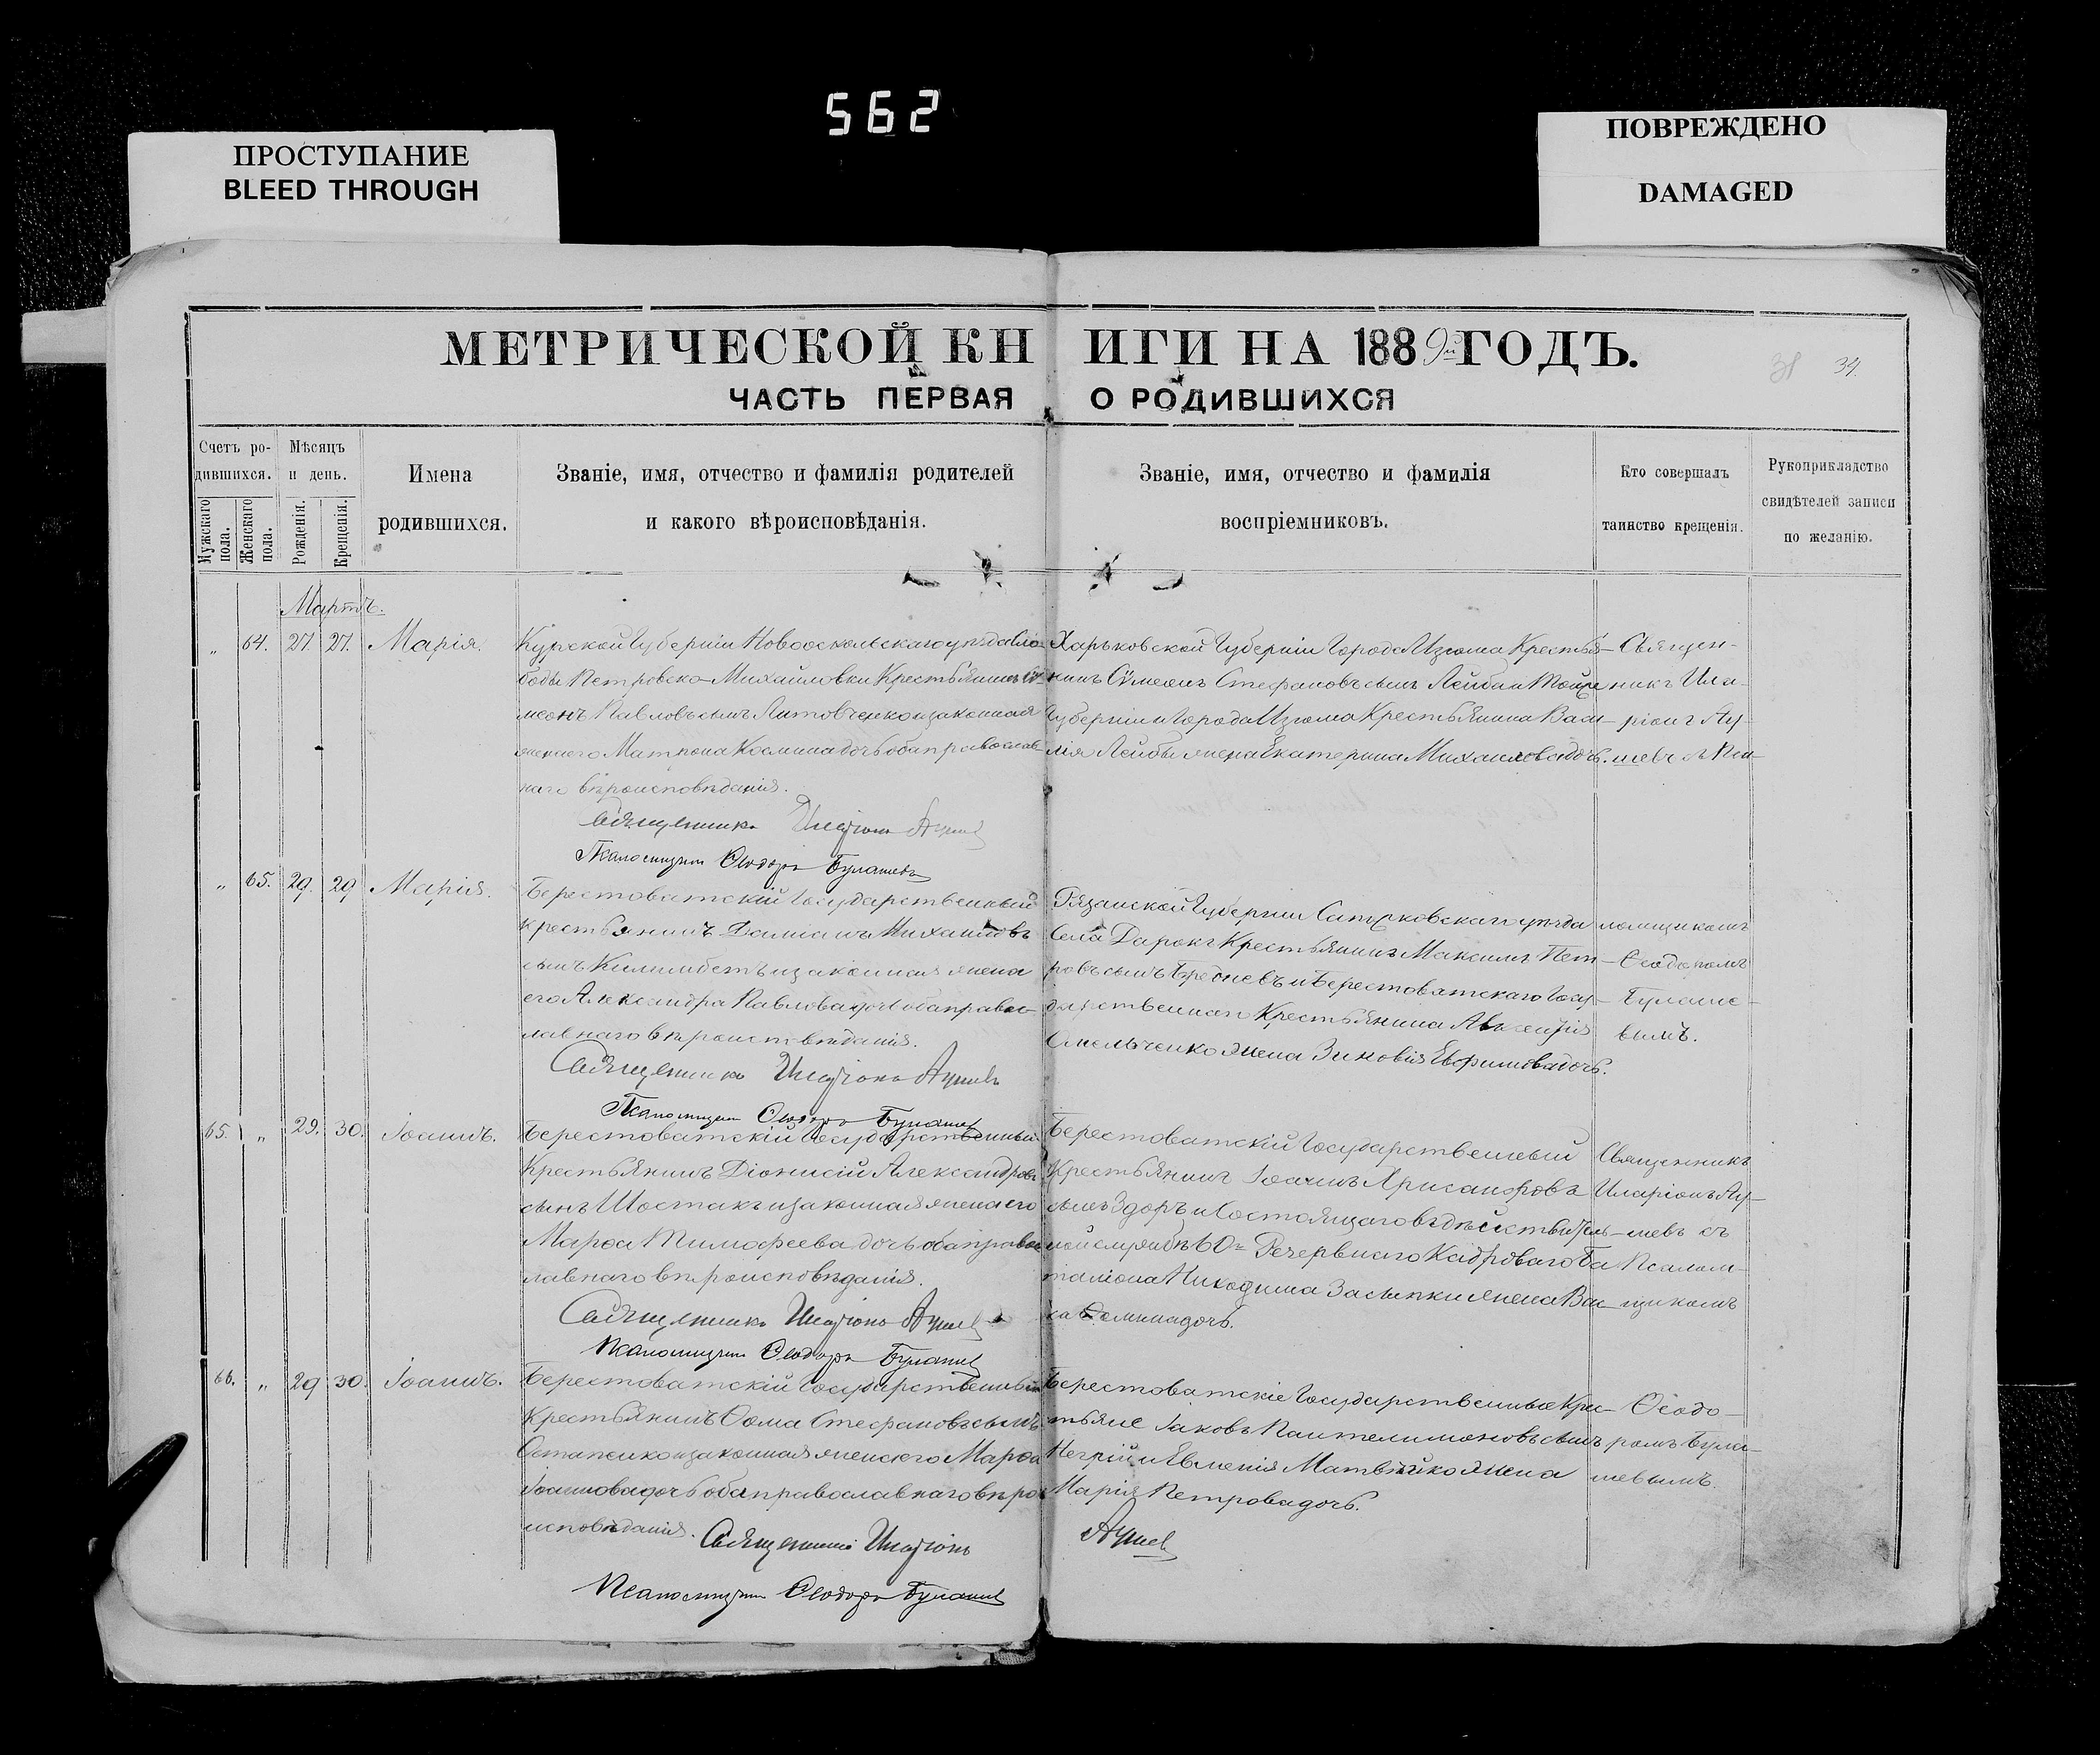 562
ПРОСТУПАНИЕ
BLEED THROUGH
ПОВРЕЖДЕНО
DAMAGED
МЕТРИЧЕСКОЙ КНИГИ НА 1889й ГОДЪ.
34.
ЧАСТЬ ПЕРВАЯ О РОДИВШИХСЯ
Счетъ ро-
дившихся.
Мужскаго пола.
Женскаго пола.
Мѣсяцъ
и день.
Рожденія.
Крещенія.
Имена
родившихся.
Званіе, имя, отчество и фамилія родителей
и какого вѣроисповѣданія.
Званіе, имя, отчество и фамилія
воспріемниковъ.
Кто совершалъ
таинство крещенія.
Рукоприкладство
свидѣтелей записи
по желанію.
Мартъ.
„ 64. 27. 27. Марія.
Курской Губерніи Новооскольскаго уѣзда Сло-
боды Петровско-Михайловки Крестьянинъ Сѵ-
меонъ Павловъ сынъ Литовченко и законная
жена его Матрона Космина дочь оба православ-
наго вѣроисповѣданія.
Священникъ Иларіонъ
Псаломщикъ Ѳеодоръ Булашевъ
Харьковской Губерніи Города Изюма Крестья-
нинъ Сѵмеонъ Стефановъ сынъ Лейба и той же
Губерніи и Города Изюма Крестьянина Васи-
лія Лейбы жена Екатерина Михаилова дочь.
Священ-
никъ Ила-
ріонъ
съ Пса-
„ 65. 29. 29 Марія.
Берестоватскій Государственный
Крестьянинъ Даміанъ Михаиловъ
сынъ и законная жена
его Александра Павлова дочь оба правос-
лавнаго вѣроисповѣданія.
Священникъ Иларіонъ
Псаломщикъ Ѳеодоръ Булашевъ
Рязанской Губерніи уѣзда
Села Крестьянинъ Максимъ Пет-
ровъ сынъ и Берестоватскаго Госу-
дарственнаго Крестьянина Авксентія
Омельченко жена Зиновія Евфимова дочь.
ломщикомъ
Ѳеодоромъ
Булаше-
вымъ.
65. „ 29. 30. Іоаннъ.
Берестоватскій Государственный
Крестьянинъ Діонисій Александровъ
сынъ Шостакъ и законная жена его
Марѳа Тимофеева дочь оба правос-
лавнаго вѣроисповѣданія.
Священникъ Иларіонъ
Псаломщикъ Ѳеодоръ Булашевъ
Берестоватскій Государственный
Крестьянинъ Іоаннъ Хрисанфовъ
сынъ Здоръ и Состоящаго въ дѣйствитель-
ной службѣ 60го Резервнаго Кадроваго Ба
таліона Никодима Засыпки жена Вас
са Ѳомина дочь.
Священникъ
Иларіонъ
съ
Псалом-
щикомъ
66. „ 29 30. Іоаннъ.
Берестоватскій Государственный
Крестьянинъ Ѳома Стефановъ сынъ
Остапенко и законная жена его Марѳа
Іоаннова дочь оба православнаго вѣро
исповѣданія.
Священникъ Иларіонъ
Псаломщикъ Ѳеодоръ Булашевъ
Берестоватскіе Государственные Крес-
тьяне Іаковъ Пантелимоновъ сынъ
Негрій и Евменія Матвѣйко жена
Марія Петрова дочь.
Ѳеодо-
ромъ Була-
шевымъ.